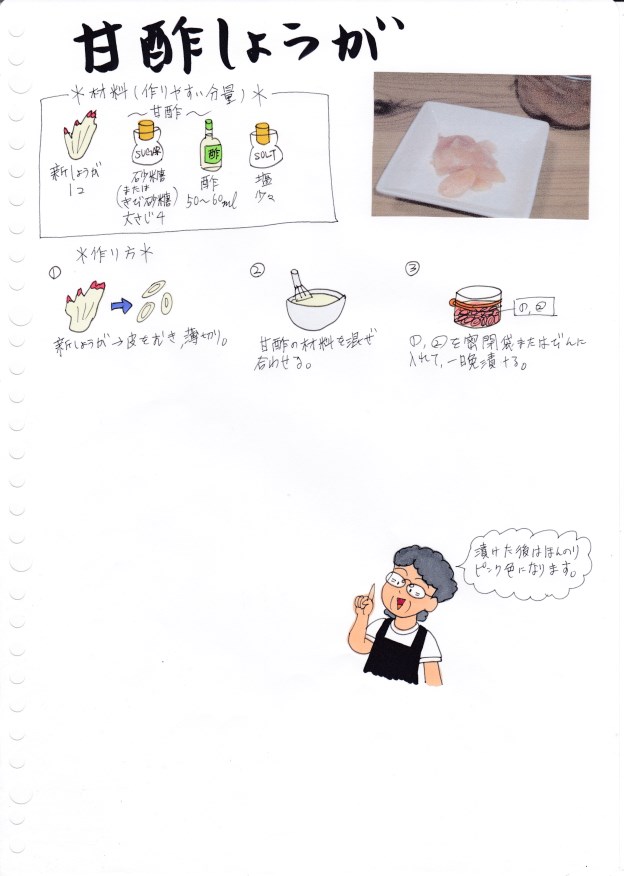 甘酢しょうが
＊材料(作りやすい分量)＊
〜甘酢〜
新しょうが
1コ
SUGAR
砂糖
(または
きび砂糖)
大さじ4
酢
酢
50〜60ml
SOLT
塩
少々
＊作り方＊
①
新しょうが→皮をむき、薄切り。
②
甘酢の材料を混ぜ
合わせる。
③
①,②
①,②を密閉袋またはびんに
入れて、一晩漬ける。
漬けた後はほんのり
ピンク色になります。